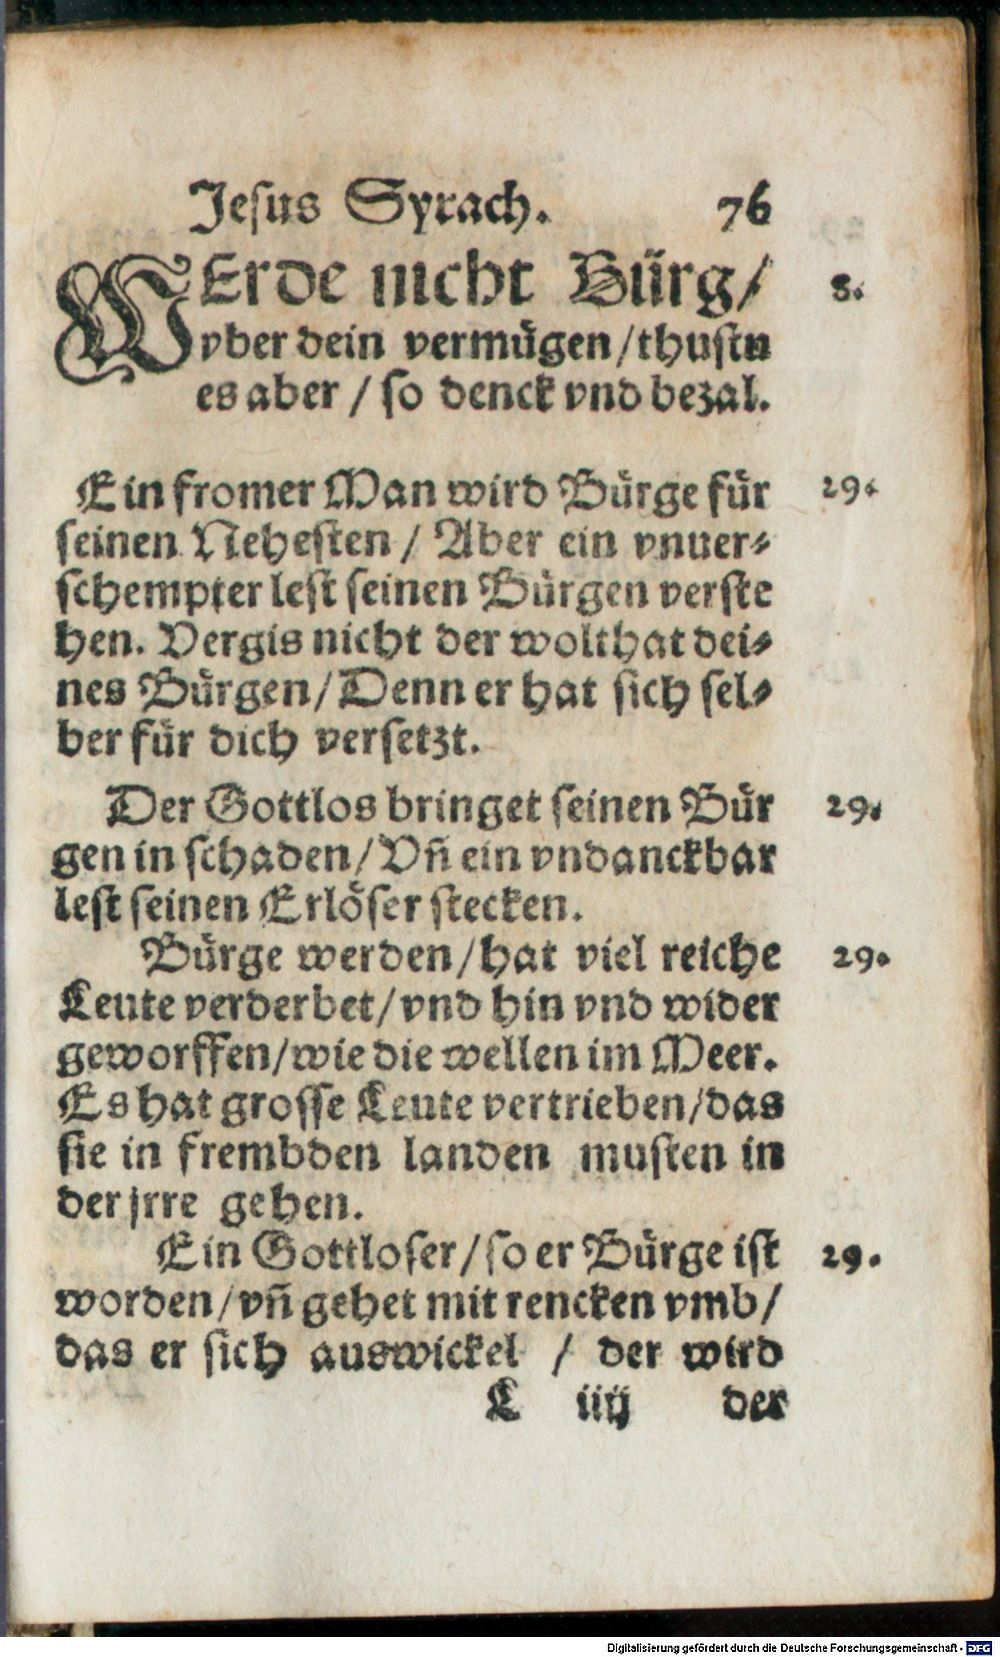 Jesus Syrach. 76
WErde nicht Bürg/ 8.
vber dein vermügen/thustu
es aber / so denck vnd bezal.
Ein fromer Man wird Bürge für 29.
seinen Nehesten / Aber ein vnuer-
schempter lest seinen Bürgen verste
hen. Vergis nicht der wolthat dei-
nes Bürgen/Denn er hat sich sel-
ber für dich versetzt.
Der Gottlos bringet seinen Bür 29.
gen in schaden/Vñ ein vndanckbar
lest seinen Erlöser stecken.
Bürge werden/hat viel reiche 29.
Leute verderbet/vnd hin vnd wider
geworffen/wie die wellen im Meer.
Es hat grosse Leute vertrieben/das
sie in frembden landen musten in
der jrre gehen.
Ein Gottloser/so er Bürge ist 29.
worden/vñ gehet mit rencken vmb/
das er sich auswickel / der wird
L iiij der
Digitalisierung gefördert durch die Deutsche Forschungsgemeinschaft - DFG